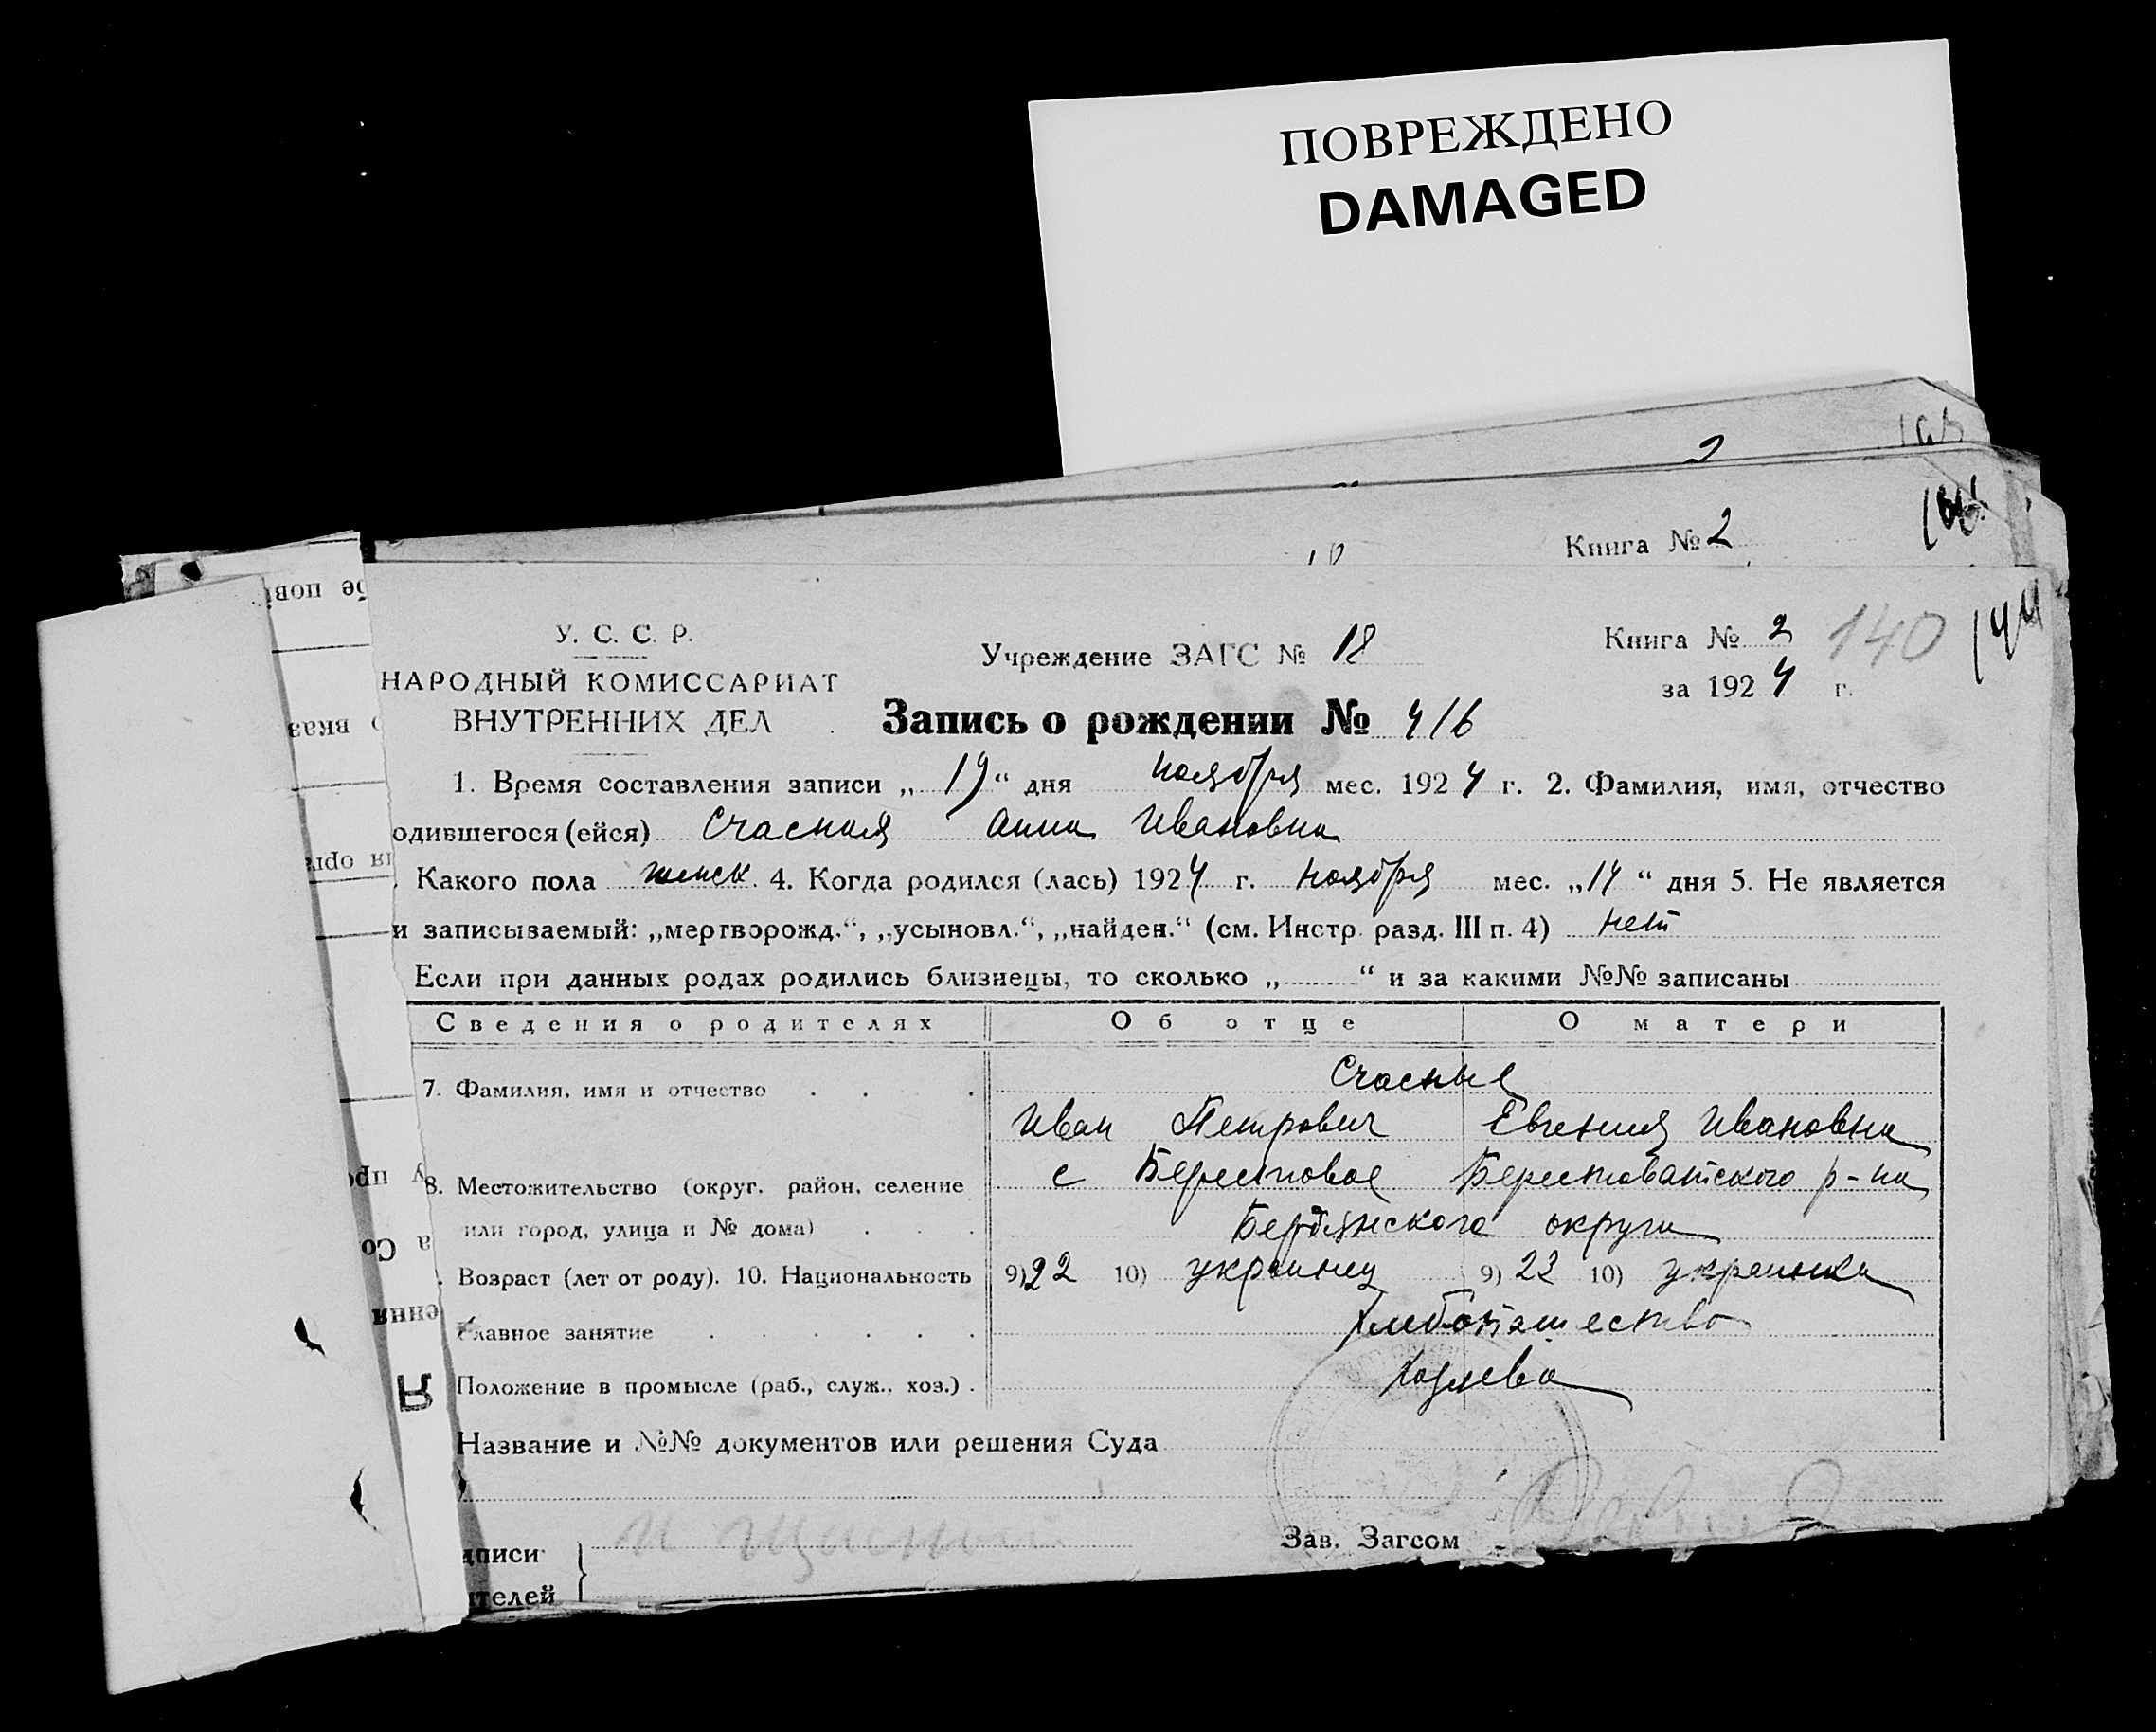 ПОВРЕЖДЕНО
DAMAGED
Книга № 2
У. С. С. Р.
НАРОДНЫЙ КОМИССАРИАТ
ВНУТРЕННИХ ДЕЛ
Учреждение ЗАГС № 18
Книга № 2 140 144
за 1924 г.
Запись о рождении № 416
1. Время составления записи „19“ дня ноября мес. 1924 г. 2. Фамилия, имя, отчество
одившегося (ейся) Счасная Анна Ивановна
Какого пола женск. 4. Когда родился (лась) 1924 г. ноября мес. „14“ дня 5. Не является
и записываемый: „мертворожд.“, „усыновл.“, „найден.“ (см. Инстр. разд. III п. 4) нет
Если при данных родах родились близнецы, то сколько „ “ и за какими №№ записаны
Сведения о родителях Об отце О матери
7. Фамилия, имя и отчество Счасные
Иван Петрович Евгения Ивановна
8. Местожительство (округ, район, селение с Берестовое Берестоватского р-на
или город, улица и № дома) Бердянского округа
Возраст (лет от роду). 10. Национальность 9) 22 10) украинец 9) 22 10) украинка
Главное занятие хлебопашество
Положение в промысле (раб., служ., хоз.) хозяева
Название и №№ документов или решения Суда
дписи
ителей
Зав. Загсом